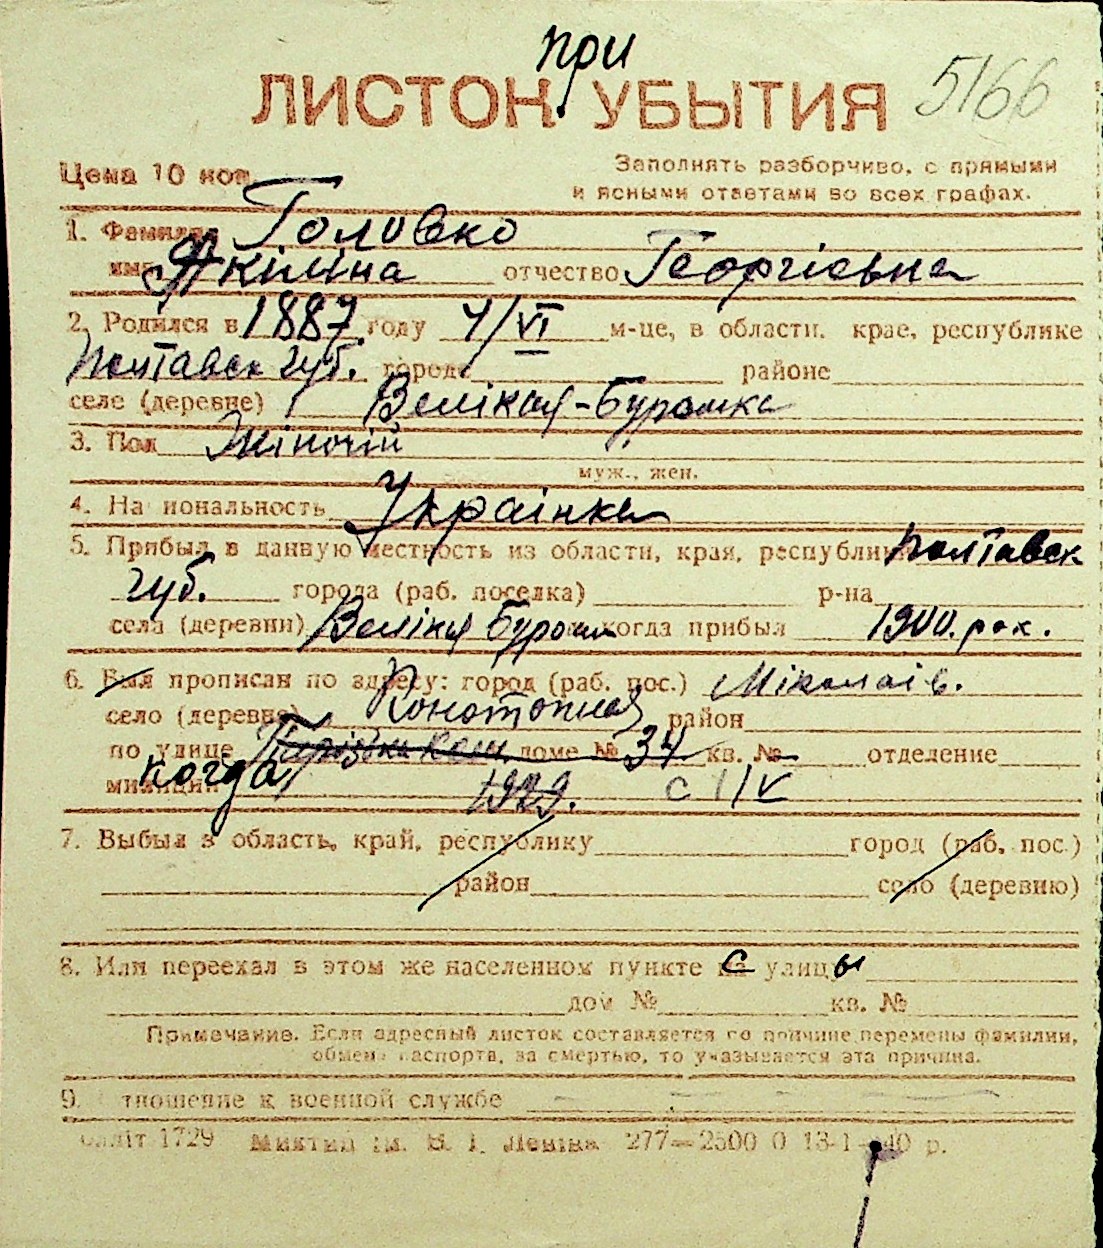 при
ЛИСТОК УБЫТИЯ 5166
Цена 10 коп.
Заполнять разборчиво, с прямыми
и ясными ответами во всех графах.
1. Фамилия Головко
имя Якіліна отчество Георгіевна
2. Родился в 1887 году 4/VI м-це, в области, крае, республике
Полтавск губ. городе районе
селе (деревне) Велікая-Буромка
3. Пол Жіночій
муж., жен.
4. На иональность Украінка
5. Прибыл в данную местность из области, края, республики Полтавск
губ. города (раб. поселка) р-на
села (деревни) Велікая Буромка когда прибыл 1900. рок.
6. Был прописан по адресу: город (раб. пос.) Міколаів.
село (деревне) Конотопная район
по улице доме № 34 кв. № отделение
милиции когда 1929. с 1/V
7. Выбыл в область, край, республику город (раб. пос.)
район село (деревню)
8. Или переехал в этом же населенном пункте с улицы
дом № кв. №
Примечание. Если адресный листок составляется по причине перемены фамилии,
обмена паспорта, за смертью, то указывается эта причина.
9. тношение к военной службе
1729 277—2500 0 13-1-40 р.